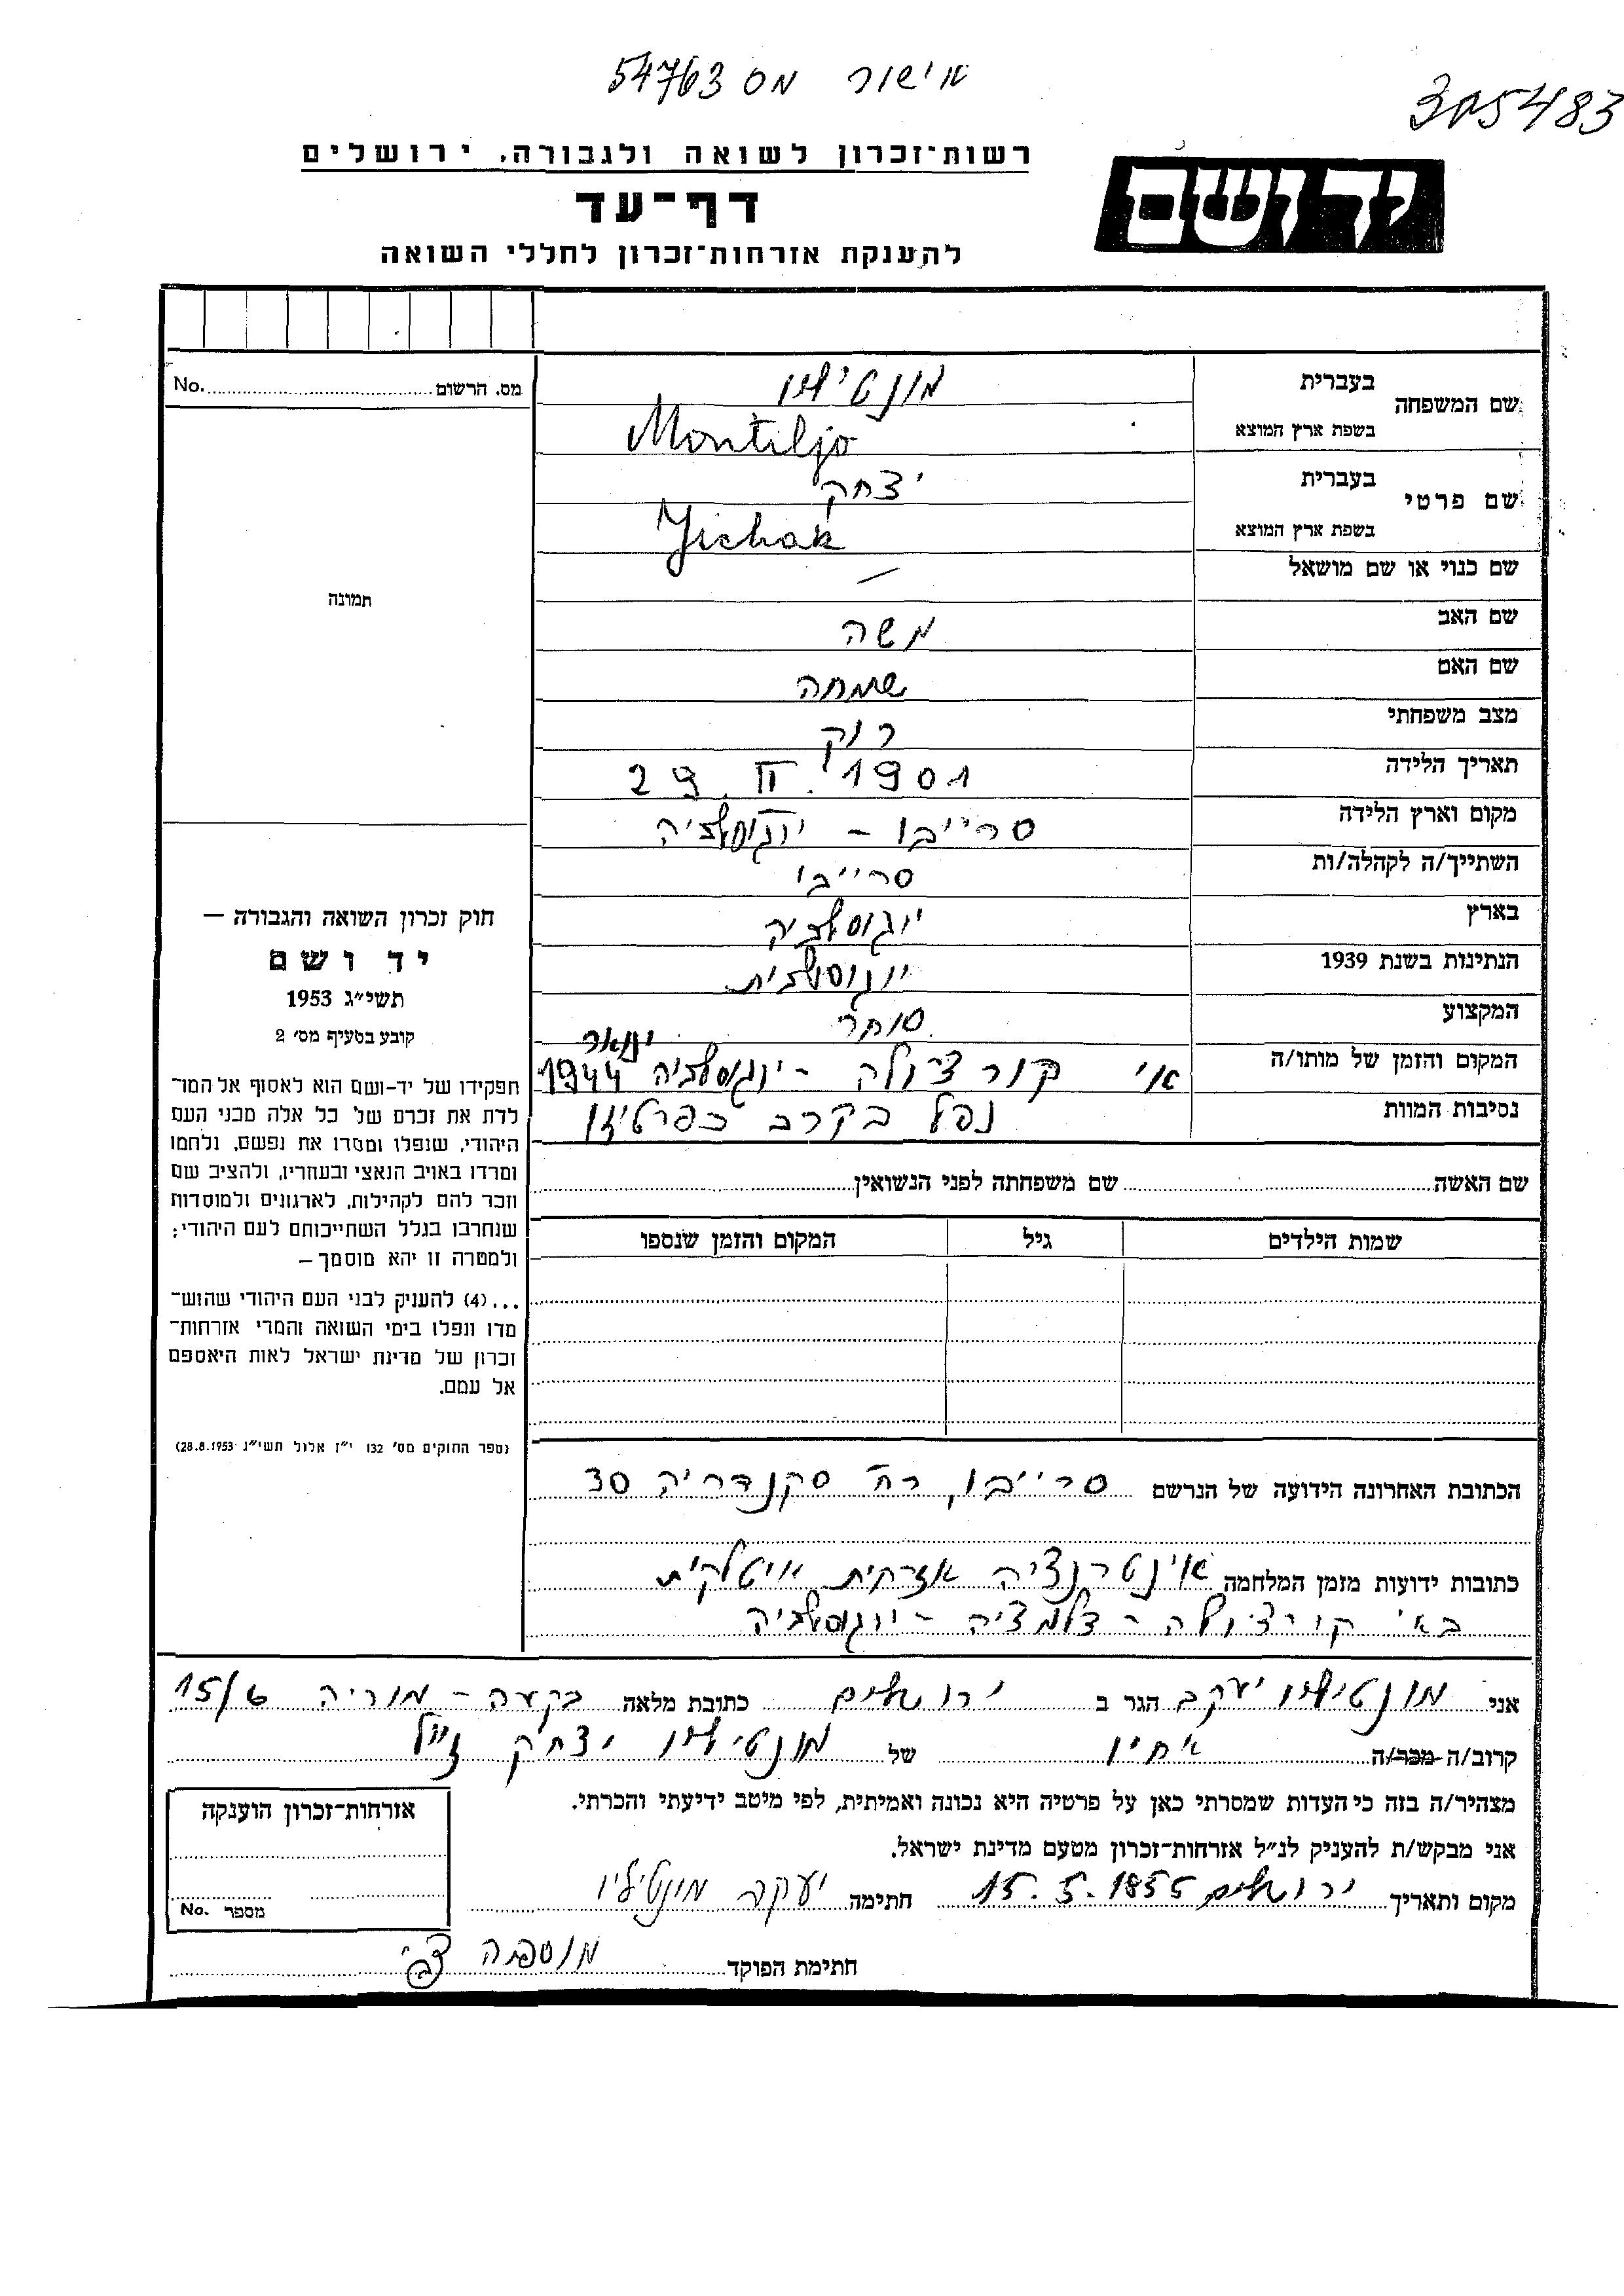 אישור מס 54763
305483
רשות־זכרון לשואה ולגבורה, ירושלים
יד ושם
דף־עד
להענקת אזרחות־זכרון לחללי השואה
מס. הרשום No.
תמונה
שם המשפחה
בעברית מונטיליו
בשפת ארץ המוצא Montiljo
שם פרטי
בעברית יצחק
בשפת ארץ המוצא Jichak
שם כנוי או שם מושאל —
שם האב משה
שם האם שמחה
מצב משפחתי רוק
תאריך הלידה 29. II. 1901
מקום וארץ הלידה סרייבו - יוגוסלביה
השתייך/ה לקהלה/ות סרייבו
בארץ יוגוסלביה
הנתינות בשנת 1939 יוגוסלבית
המקצוע סוחר
ינואר
המקום והזמן של מותו/ה אי קורצ'ולה - יוגוסלביה 1944
נסיבות המוות נפל בקרב כפרטיזן
שם האשה שם משפחתה לפני הנשואין
שמות הילדים גיל המקום והזמן שנספו
חוק זכרון השואה והגבורה —
יד ושם
תשי״ג 1953
קובע בסעיף מס׳ 2
תפקידו של יד-ושם הוא לאסוף אל המו־
לדת את זכרם של כל אלה מבני העם
היהודי, שנפלו ומסרו את נפשם, נלחמו
ומרדו באויב הנאצי ובעוזריו, ולהציב שם
וזכר להם לקהילות, לארגונים ולמוסדות
שנחרבו בגלל השתייכותם לעם היהודי;
ולמטרה זו יהא מוסמך —
...(4) להענין לבני העם היהודי שהוש־
מדו ונפלו בימי השואה והמרי אזרחות־
זכרון של מדינת ישראל לאות היאספם
אל עמם.
(ספר החוקים מס׳ 132 י״ז אלול תשי״ג 28.8.1953)
הכתובת האחרונה הידועה של הנרשם סרייבו, רח' סקנדריה 30
כתובות ידועות מזמן המלחמה אינטרנציה אזרחית איטלקית
באי קורצ'ולה - דלמציה - יוגוסלביה
אני מונטיליו יעקב הגר ב ירושלים כתובת מלאה בקעה - מוריה 15/6
קרוב/ה מכר/ה אחיו של מונטיליו יצחק ז״ל
מצהיר/ה בזה כי העדות שמסרתי כאן על פרטיה היא נכונה ואמיתית, לפי מיטב ידיעתי והכרתי.
אני מבקש/ת להעניק לנ״ל אזרחות־זכרון מטעם מדינת ישראל.
מקום ותאריך ירושלים 15.5.1855 חתימה יעקב מונטיליו
חתימת הפוקד
אזרחות־זכרון הוענקה
מספר No.